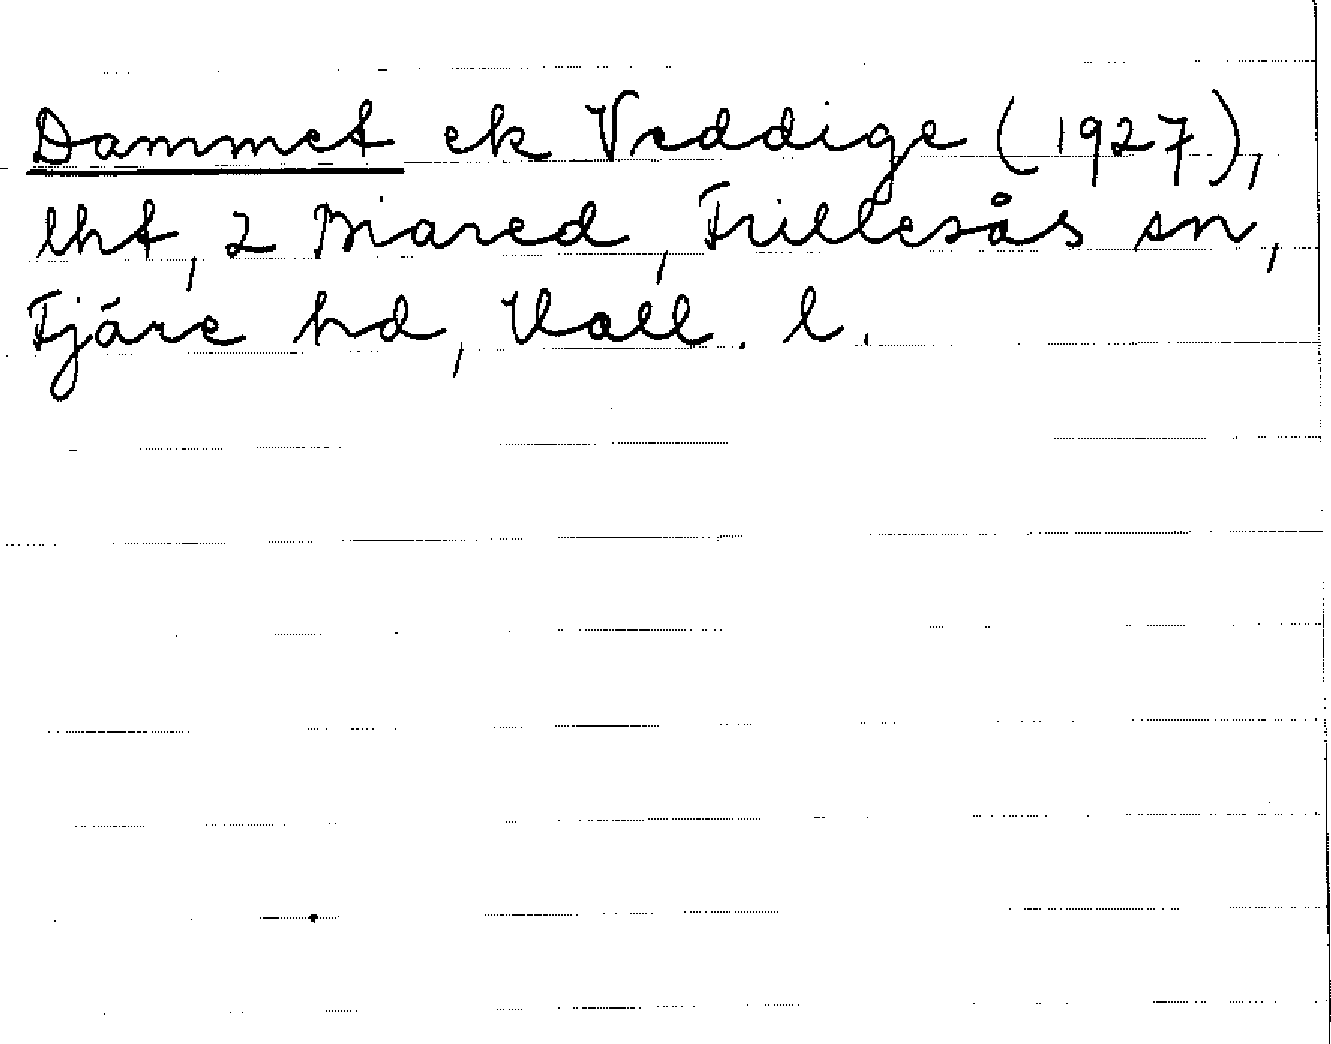 Dammet ek Veddige (1927),
lht, 2 Miared, Frillesås sn,
Fjäre hd, Hall. l.